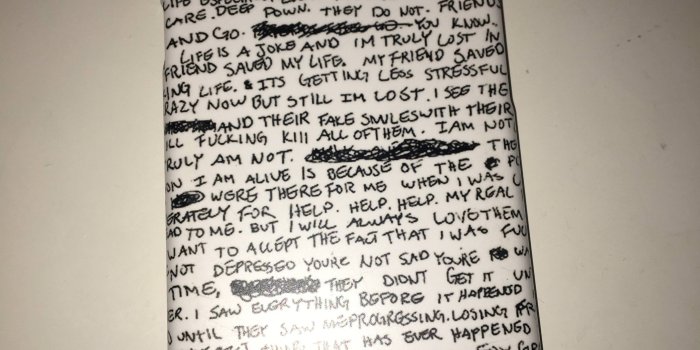 LIFE
CARE. DEEP DOWN. THEY DO NOT. FRIENDS
AND GO. YOU KNOW.
LIFE IS A JOKE AND IM TRULY LOST IN
FRIEND SAVED MY LIFE. MY FRIEND SAVED
ING LIFE. & ITS GETTING LESS STRESSFUL
RAZY NOW BUT STILL IM LOST. I SEE THE
AND THEIR FAKE SMILES WITH THEIR
ILL FUCKING KILL ALL OF THEM. I AM NOT
RULY AM NOT. THE
ON I AM ALIVE IS BECAUSE OF THE PO
WERE THERE FOR ME WHEN I WAS
ERATELY FOR HELP. HELP. HELP. MY REAL
AD TO ME. BUT I WILL ALWAYS LOVE THEM
WANT TO ACCEPT THE FACT THAT I WAS FUC
NOT DEPRESSED YOURE NOT SAD YOURE WA
TIME, THEY DIDNT GET IT UN
ER. I SAW EVERYTHING BEFORE IT HAPPENED
D UNTIL THEY SAW ME PROGRESSING. LOSING
THAT HAS EVER HAPPENED